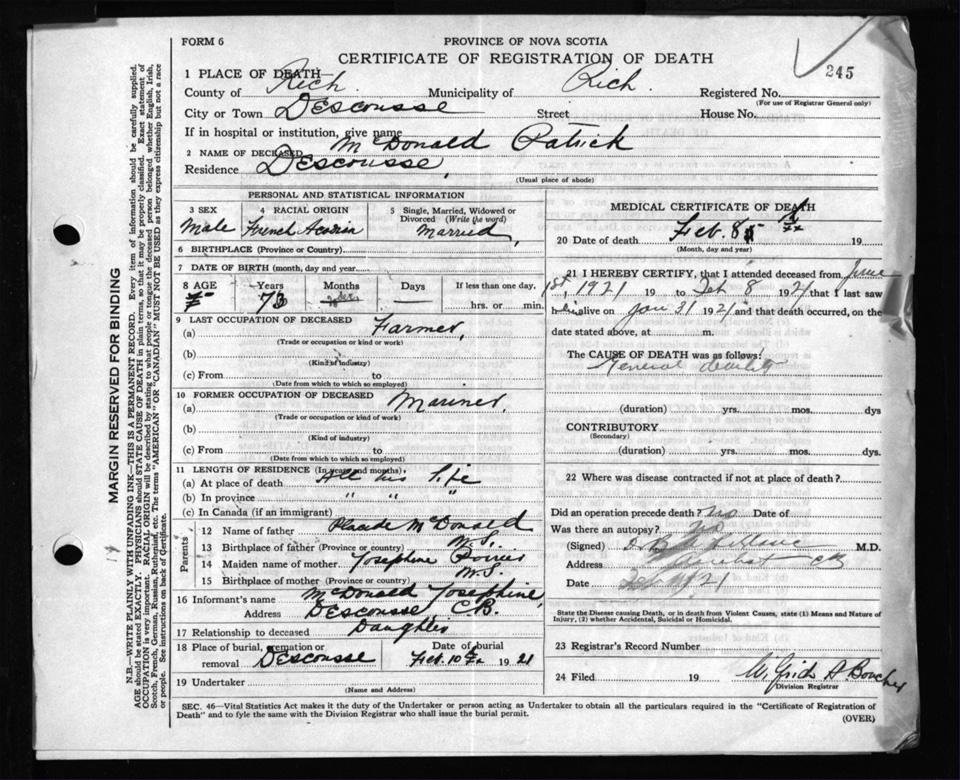 FORM 6
PROVINCE OF NOVA SCOTIA
CERTIFICATE OF REGISTRATION OF DEATH
245
1 PLACE OF DEATH
County of Rich. Municipality of Rich. Registered No.
(For use of Registrar General only)
City or Town Descousse Street House No.
If in hospital or institution, give name
2 NAME OF DECEASED McDonald Patrick
Residence Descousse,
(Usual place of abode)
PERSONAL AND STATISTICAL INFORMATION
3 SEX 4 RACIAL ORIGIN 5 Single, Married, Widowed or Divorced (Write the word)
Male French Married,
6 BIRTHPLACE (Province or Country)
7 DATE OF BIRTH (month, day and year)
8 AGE Years Months Days If less than one day,
73 hrs. or min.
9 LAST OCCUPATION OF DECEASED
(a) Farmer,
(Trade or occupation or kind of work)
(b)
(Kind of industry)
(c) From to
(Date from which to which so employed)
10 FORMER OCCUPATION OF DECEASED
(a) Mariner,
(Trade or occupation or kind of work)
(b)
(Kind of industry)
(c) From to
(Date from which to which so employed)
11 LENGTH OF RESIDENCE (In years and months)
(a) At place of death All his life
(b) In province " " "
(c) In Canada (if an immigrant)
Parents
12 Name of father Placide McDonald
13 Birthplace of father (Province or country) N.S.
14 Maiden name of mother Josephine Poirier
15 Birthplace of mother (Province or country) N.S.
16 Informant's name McDonald Josephine,
Address Descousse C.B.
17 Relationship to deceased Daughter
18 Place of burial, cremation or removal Descousse Date of burial Feb. 10 1921
19 Undertaker
(Name and Address)
MEDICAL CERTIFICATE OF DEATH
20 Date of death Feb. 8 19
(Month, day and year)
21 I HEREBY CERTIFY, that I attended deceased from June
1st, 1921 19 to Feb 8 1921 that I last saw
h alive on Jan 31 1921 and that death occurred, on
the date stated above, at m.
The CAUSE OF DEATH was as follows:
General debility
(duration) yrs. mos. dys
CONTRIBUTORY
(Secondary)
(duration) yrs. mos. dys.
22 Where was disease contracted if not at place of death?
Did an operation precede death? No Date of
Was there an autopsy? No
(Signed) M.D.
Address Arichat CB
Date 21
State the Disease causing Death, or in death from Violent Causes, state (1) Means and Nature of Injury, (2) whether Accidental, Suicidal or Homicidal.
23 Registrar's Record Number
24 Filed 19 Wilfrid A Boucher
Division Registrar
SEC. 46—Vital Statistics Act makes it the duty of the Undertaker or person acting as Undertaker to obtain all the particulars required in the "Certificate of Registration of
Death" and to fyle the same with the Division Registrar who shall issue the burial permit.
(OVER)
MARGIN RESERVED FOR BINDING
N.B.—WRITE PLAINLY WITH UNFADING INK—THIS IS A PERMANENT RECORD. Every item of information should be carefully supplied.
AGE should be stated EXACTLY. PHYSICIANS should STATE CAUSE OF DEATH in plain terms, so that it may be properly classified. Exact statement of
OCCUPATION is very important. RACIAL ORIGIN will be described by stating to what people or tongue the deceased person belonged whether English, Irish,
Scotch, French, German, Russian, Ruthenian, etc. The terms "AMERICAN" OR "CANADIAN" MUST NOT BE USED as they express citizenship but not a race
or people. See instructions on back of Certificate.